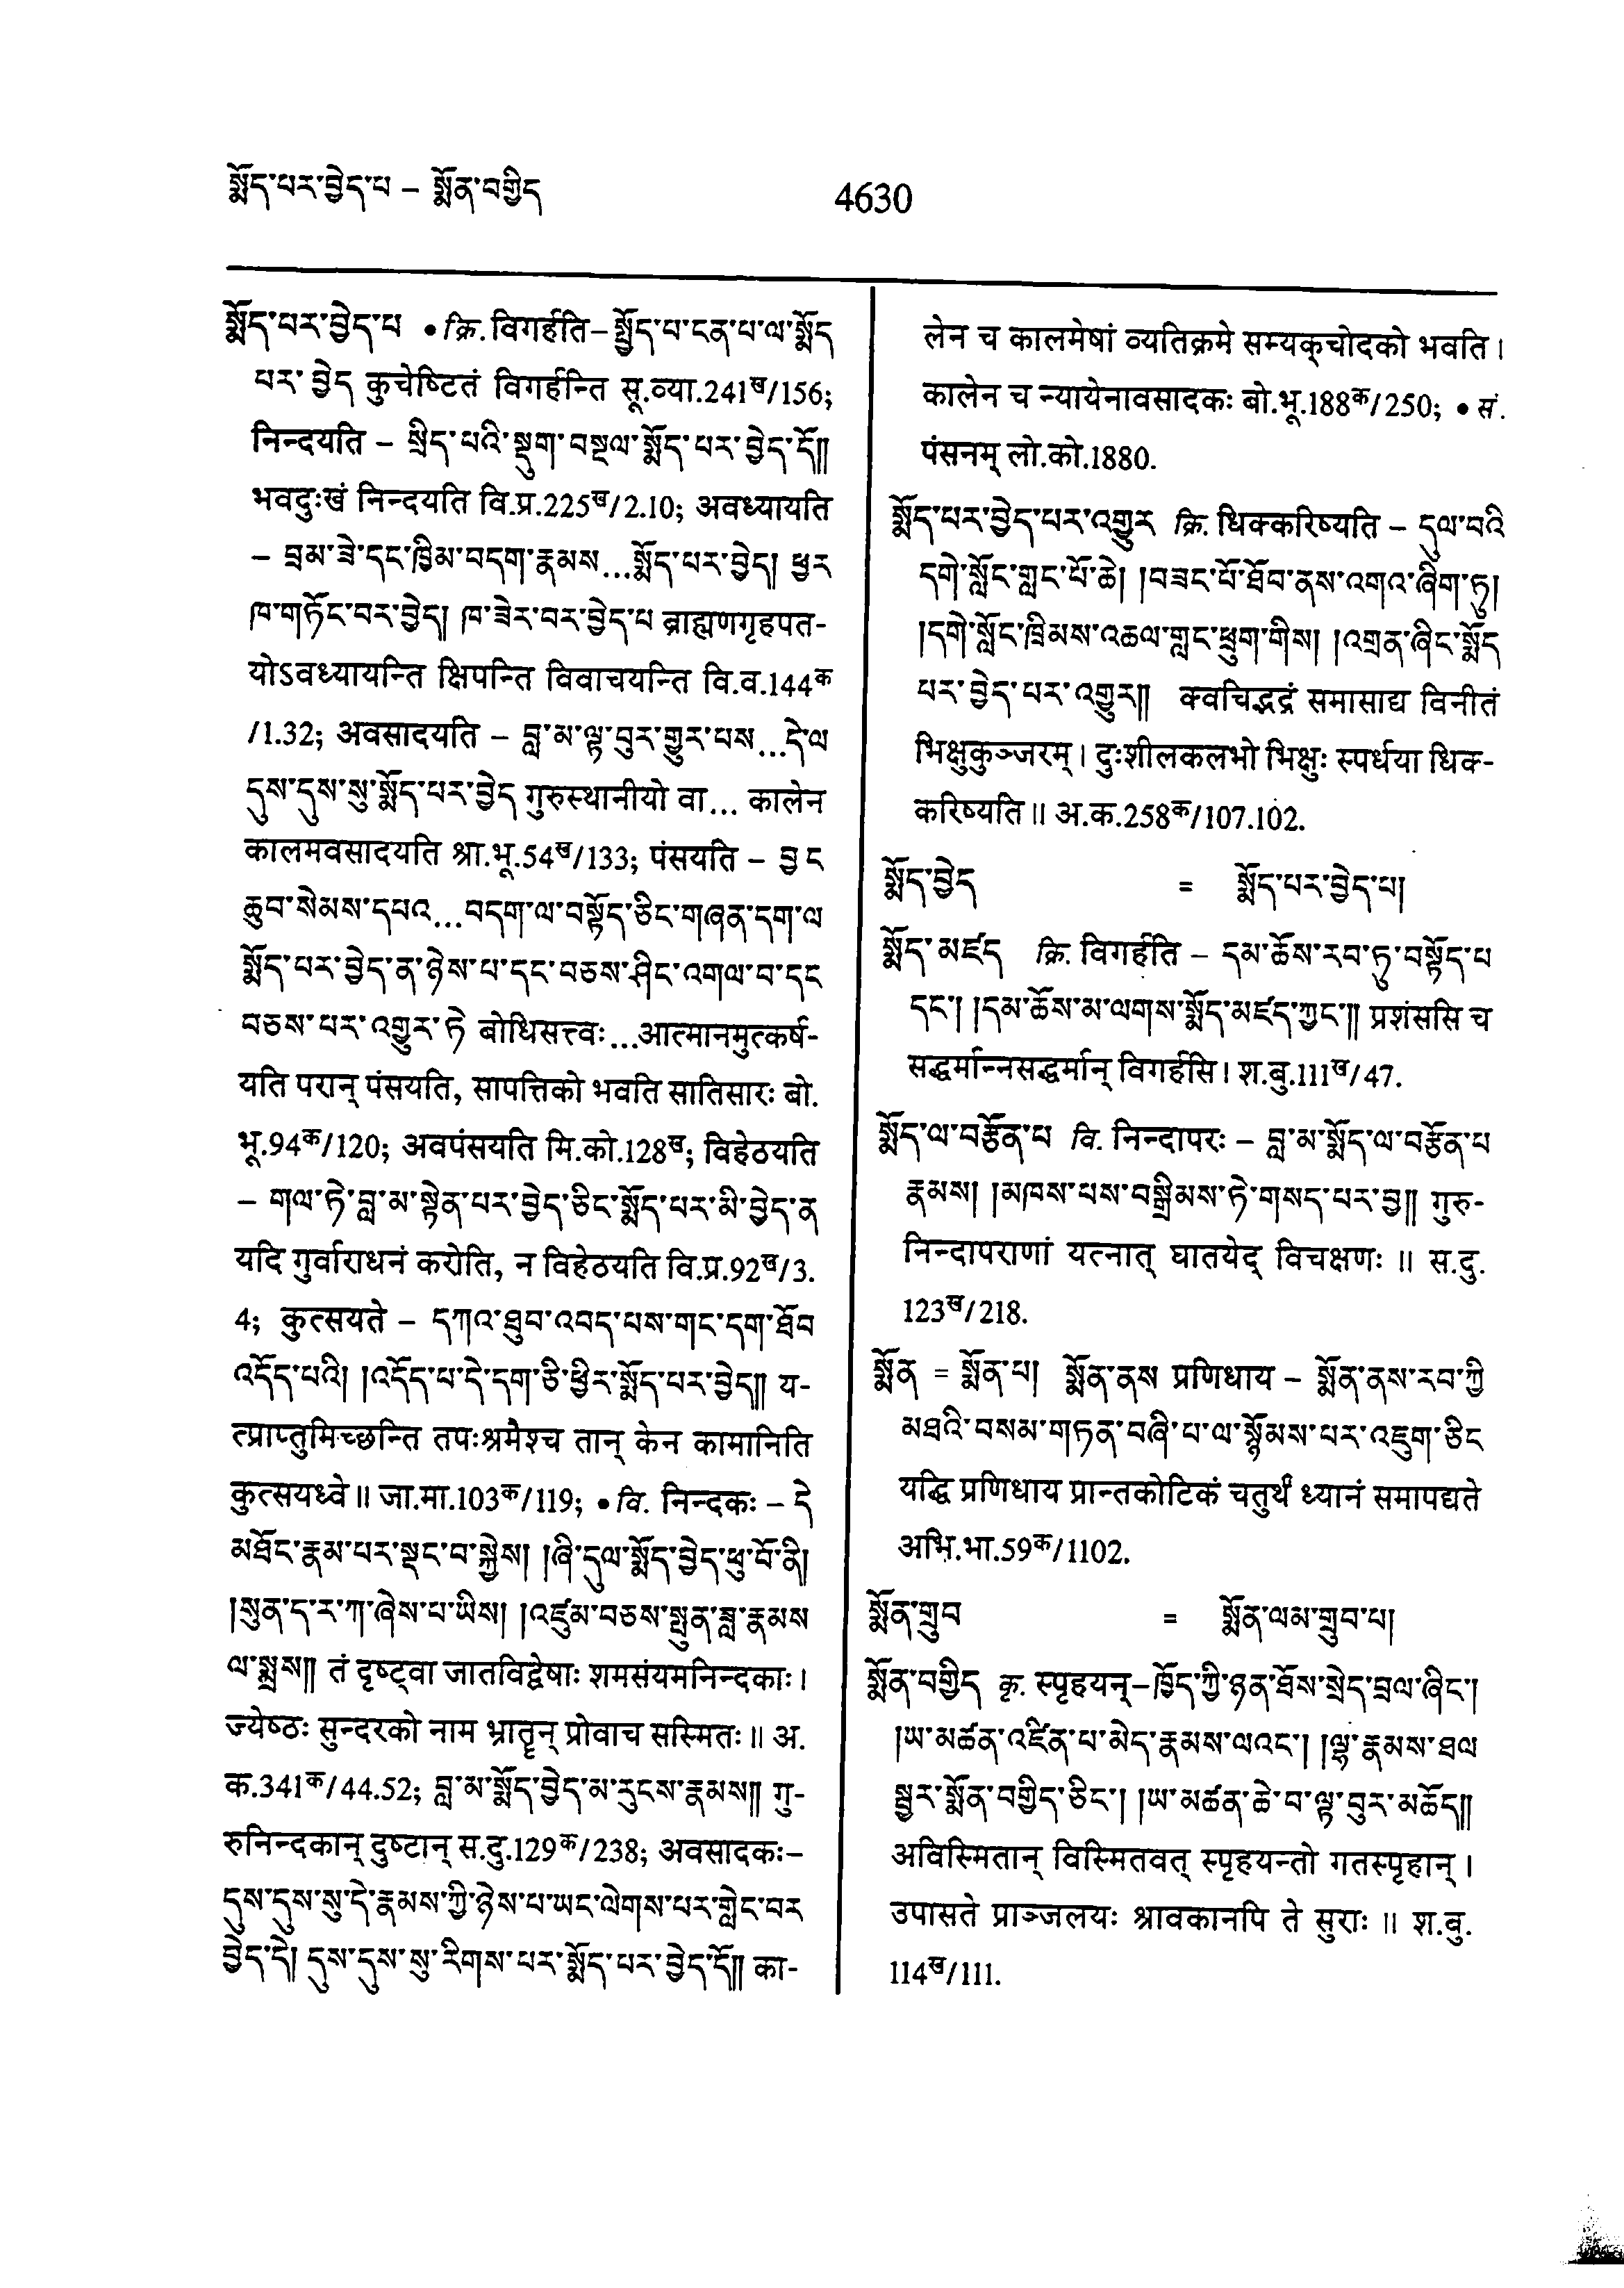 སྨོད་པར་བྱེད་པ – སྨོན་བགྱིད
4630
སྨོད་པར་བྱེད་པ • क्रि. विगर्हति – སྤྱོད་པ་ངན་པ་ལ་སྨོད
པར་བྱེད कुचेष्टितं विगर्हन्ति सू.व्या.241ख/156;
निन्दयति – སྲིད་པའི་སྡུག་བསྔལ་སྨོད་པར་བྱེད་དོ༎
भवदुःखं निन्दयति वि.प्र.225ख/2.10; अवध्यायति
– བྲམ་ཟེ་དང་ཁྱིམ་བདག་རྣམས...སྨོད་པར་བྱེད། ཕྱར
ཁ་གཏོང་བར་བྱེད། ཁ་ཟེར་བར་བྱེད་པ ब्राह्मणगृहपत-
योऽवध्यायन्ति क्षिपन्ति विवाचयन्ति वि.व.144क
/1.32; अवसादयति – བླ་མ་ལྟ་བུར་གྱུར་པས...དེ་ལ
དུས་དུས་སུ་སྨོད་པར་བྱེད गुरुस्थानीयो वा... कालेन
कालमवसादयति श्रा.भू.54ख/133; पंसयति – བྱང
ཆུབ་སེམས་དཔའ...བདག་ལ་བསྟོད་ཅིང་གཞན་དག་ལ
སྨོད་པར་བྱེད་ན་ཉེས་པ་དང་བཅས་ཤིང་འགལ་བ་དང
བཅས་པར་འགྱུར་ཏེ बोधिसत्त्वः...आत्मानमुत्कर्ष-
यति परान् पंसयति, सापत्तिको भवति सातिसारः बो.
भू.94क/120; अवपंसयति मि.को.128ख; विहेठयति
– གལ་ཏེ་བླ་མ་སྟེན་པར་བྱེད་ཅིང་སྨོད་པར་མི་བྱེད་ན
यदि गुर्वाराधनं करोति, न विहेठयति वि.प्र.92ख/3.
4; कुत्सयते – དཀའ་ཐུབ་འབད་པས་གང་དག་ཐོབ
འདོད་པའི། །འདོད་པ་དེ་དག་ཅི་ཕྱིར་སྨོད་པར་བྱེད༎ य-
त्प्राप्तुमिच्छन्ति तपःश्रमैश्च तान् केन कामानिति
कुत्सयध्वे॥ जा.मा.103क/119; • वि. निन्दकः – དེ
མཐོང་རྣམ་པར་སྡང་བ་སྐྱེས། །ཞི་དུལ་སྨོད་བྱེད་ཕུ་བོ་ནི།
།སུན་ད་ར་ཀ་ཞེས་པ་ཡིས། །འཛུམ་བཅས་སྤུན་ཟླ་རྣམས
ལ་སྨྲས༎ तं दृष्ट्वा जातविद्वेषाः शमसंयमनिन्दकाः।
ज्येष्ठः सुन्दरको नाम भ्रातॄन् प्रोवाच सस्मितः॥ अ.
क.341क/44.52; བླ་མ་སྨོད་བྱེད་མ་རུངས་རྣམས༎ गु-
रुनिन्दकान् दुष्टान् स.दु.129क/238; अवसादकः–
དུས་དུས་སུ་དེ་རྣམས་ཀྱི་ཉེས་པ་ཡང་ལེགས་པར་གླེང་བར
བྱེད་དེ། དུས་དུས་སུ་རིགས་པར་སྨོད་པར་བྱེད་དོ༎ का-
लेन च कालमेषां व्यतिक्रमे सम्यक्चोदको भवति।
कालेन च न्यायेनावसादकः बो.भू.188क/250; • सं.
पंसनम् लो.को.1880.
སྨོད་པར་བྱེད་པར་འགྱུར क्रि. धिक्करिष्यति – དུལ་བའི
དགེ་སློང་གླང་པོ་ཆེ། །བཟང་པོ་ཐོབ་ནས་འགའ་ཞིག་ཏུ།
།དགེ་སློང་ཁྲིམས་འཆལ་གླང་ཕྲུག་གིས། །འགྲན་ཞིང་སྨོད
པར་བྱེད་པར་འགྱུར༎ क्वचिद्भद्रं समासाद्य विनीतं
भिक्षुकुञ्जरम्। दुःशीलकलभो भिक्षुः स्पर्धया धिक्-
करिष्यति॥ अ.क.258क/107.102.
སྨོད་བྱེད = སྨོད་པར་བྱེད་པ།
སྨོད་མཛད क्रि. विगर्हति – དམ་ཆོས་རབ་ཏུ་བསྟོད་པ
དང༌། །དམ་ཆོས་མ་ལགས་སྨོད་མཛད་ཀྱང༌༎ प्रशंससि च
सद्धर्मानसद्धर्मान् विगर्हसि। श.बु.111ख/47.
སྨོད་ལ་བརྩོན་པ वि. निन्दापरः – བླ་མ་སྨོད་ལ་བརྩོན་པ
རྣམས། །མཁས་པས་བསྒྲིམས་ཏེ་གསད་པར་བྱ༎ गुरु-
निन्दापराणां यत्नात् घातयेद् विचक्षणः॥ स.दु.
123ख/218.
སྨོན = སྨོན་པ། སྨོན་ནས प्रणिधाय – སྨོན་ནས་རབ་ཀྱི
མཐའི་བསམ་གཏན་བཞི་པ་ལ་སྙོམས་པར་འཇུག་ཅིང
यद्धि प्रणिधाय प्रान्तकोटिकं चतुर्थं ध्यानं समापद्यते
अभि.भा.59क/1102.
སྨོན་གྲུབ = སྨོན་ལམ་གྲུབ་པ།
སྨོན་བགྱིད कृ. स्पृहयन्–ཁྱོད་ཀྱི་ཉན་ཐོས་སྲེད་བྲལ་ཞིང༌།
།ཡ་མཚན་འཛིན་པ་མེད་རྣམས་ལའང༌། །ལྷ་རྣམས་ཐལ
སྦྱར་སྨོན་བགྱིད་ཅིང༌། །ཡ་མཚན་ཆེ་བ་ལྟ་བུར་མཆོད༎
अविस्मितान् विस्मितवत् स्पृहयन्तो गतस्पृहान्।
उपासते प्राञ्जलयः श्रावकानपि ते सुराः॥ श.बु.
114ख/111.